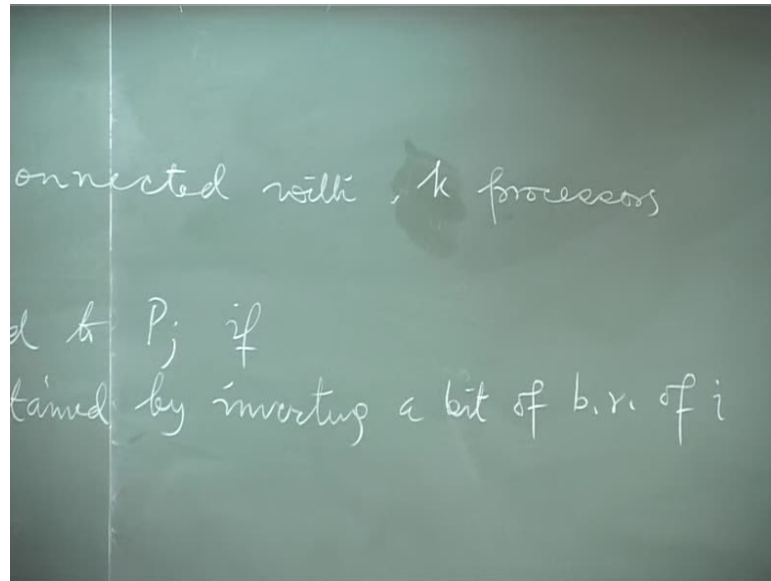 onnected with k processors
d to Pj if
tained by inverting a bit of b.r. of i